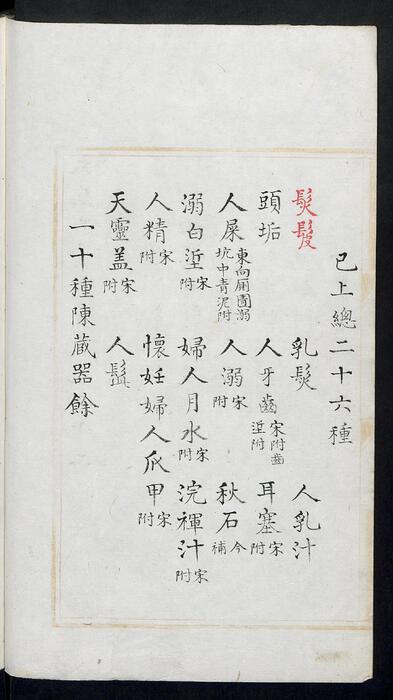 已上總二十六種
髮髲 乳髮 人乳汁
頭垢 人牙齒 宋附齒垽附 耳塞 宋附
人屎 東向厠圊溺坑中青泥附 人溺 宋附 秋石 今補
溺白垽 宋附 婦人月水 宋附 浣褌汁 宋附
人精 宋附 懷妊婦人爪甲 宋附
天靈盖 宋附 人髭
一十種陳蔵器餘